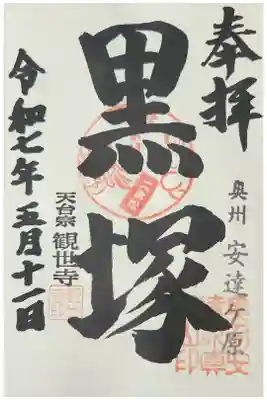 奉拝
奥州 安達ケ原
黒塚
天台宗 観世寺
令和七年五月十一日